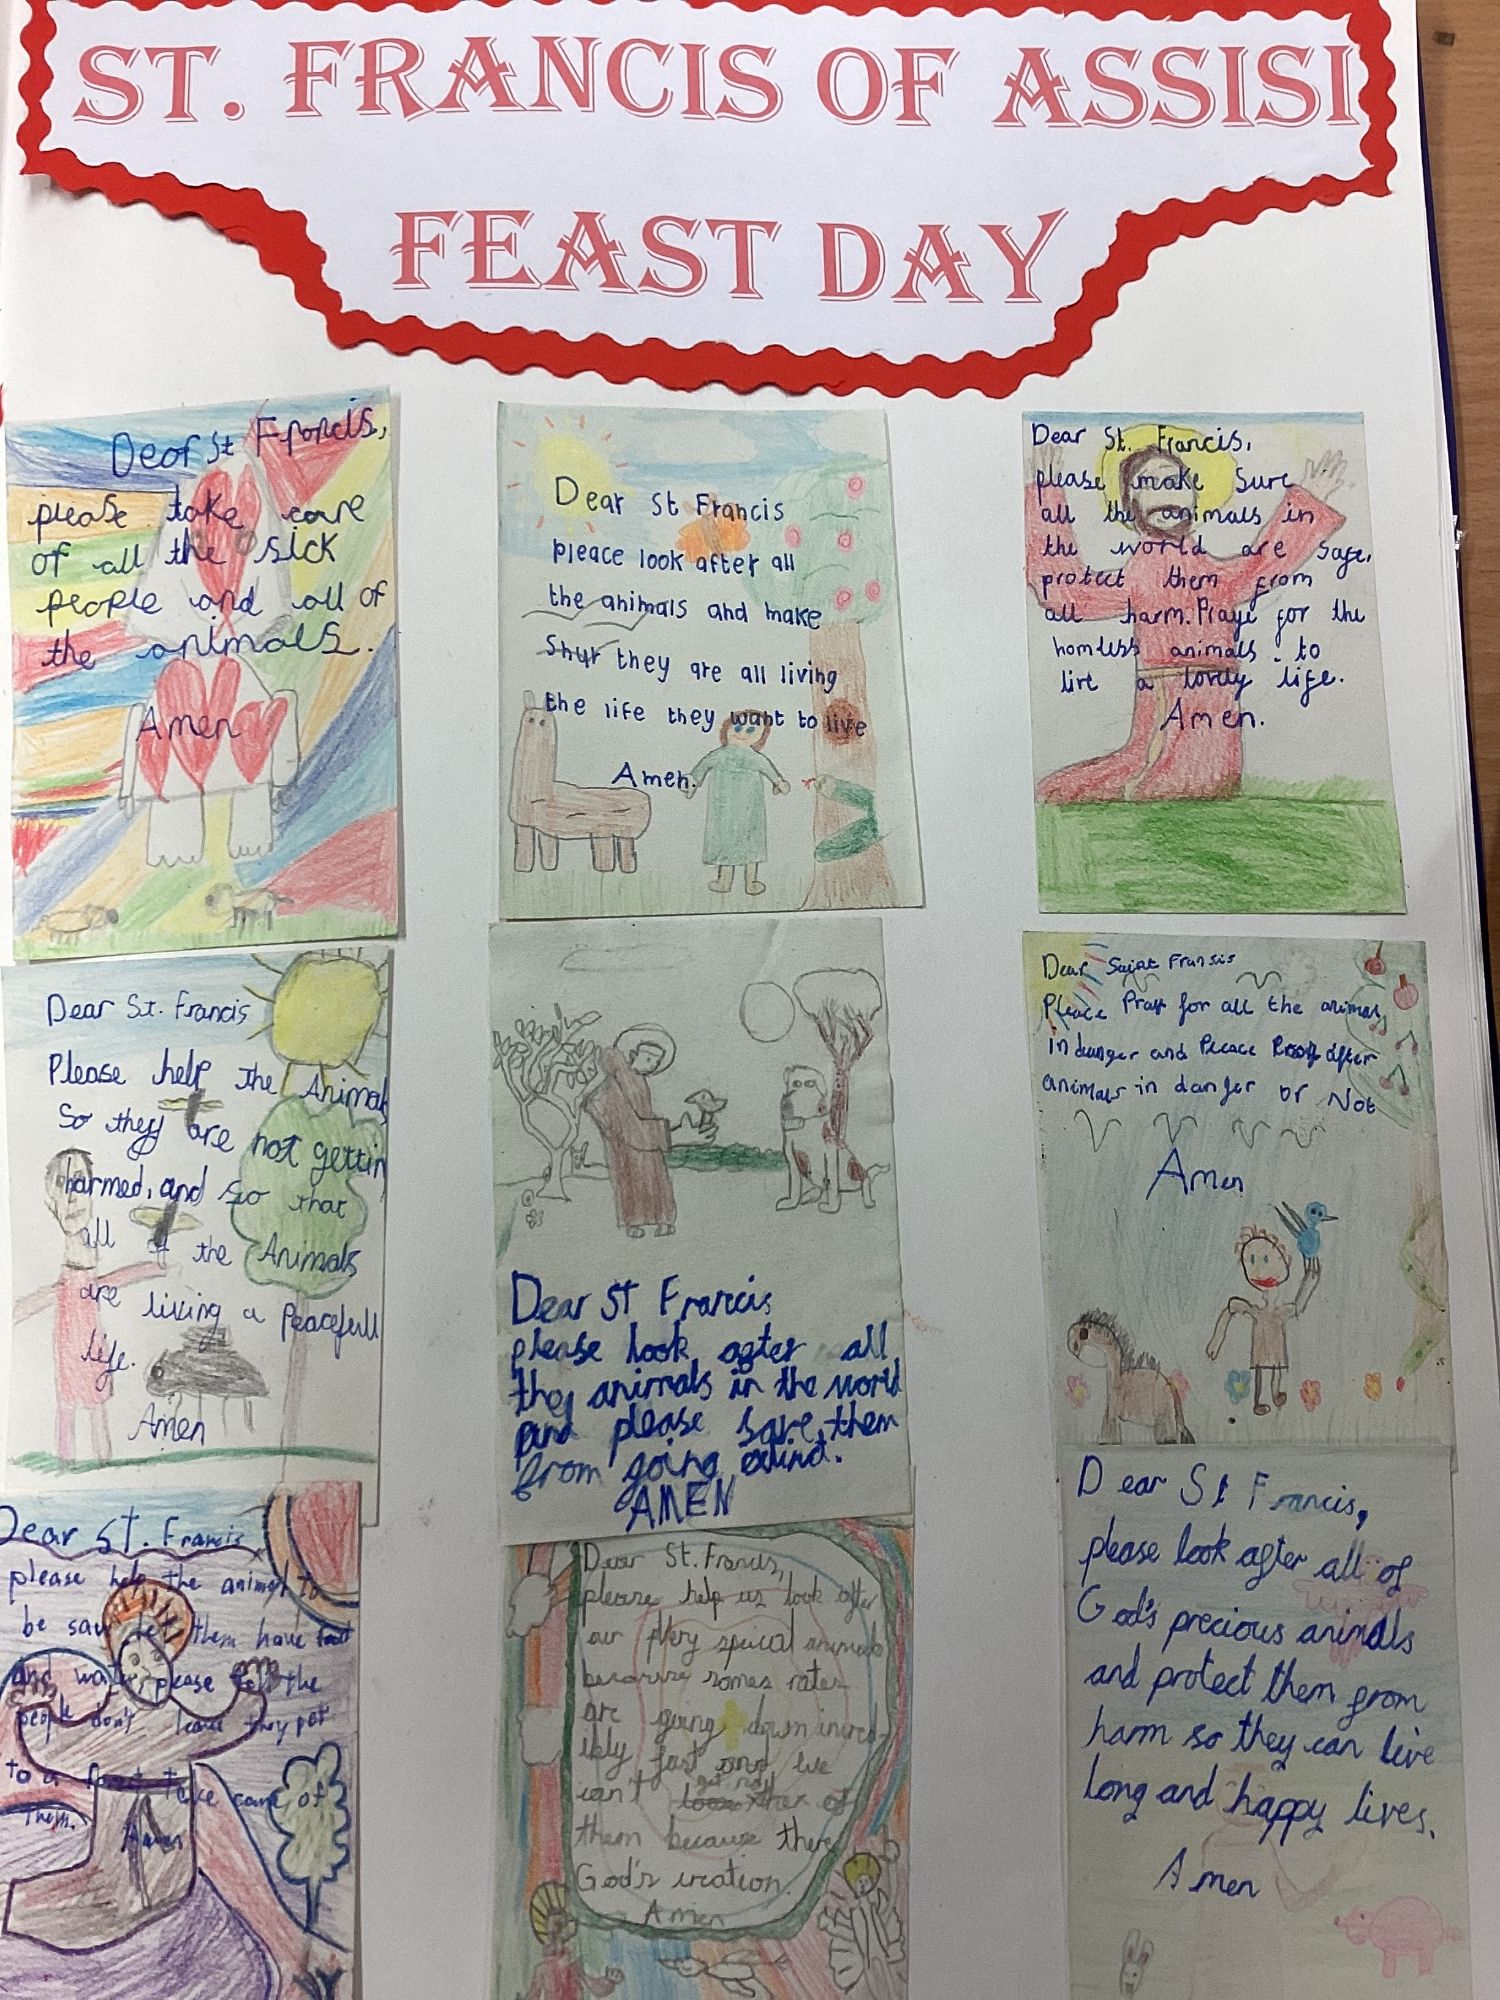 ST. FRANCIS OF ASSISI
FEAST DAY
Dear St Francis,
please take care
of all the sick
people and all of
the animals.
Amen
Dear St Francis
pleace look after all
the animals and make
shur they are all living
the life they want to live
Amen.
Dear St. Francis,
please make sure
all the animals in
the world are safe,
protect them from
all harm. Praye for the
homless animals to
live a lovely life.
Amen.
Dear St. Francis
Please help the Animals
So they are not gettin
harmed, and so that
all of the Animals
are living a Peacefull
life.
Amen
Dear St Francis
please look after all
they animals in the world
and please save them
from going
AMEN
Dear Saint Fransis
Pleace Pray for all the animals
in danger and Pleace Look after
animals in danger or Not
Amen
Dear St. Francis
please help the animal to
be save let them have food
and water, please tell the
people don't leave they pet
to a take care of
them.
Amen
Dear St. Francis,
please help us look after
our very special animals
because somes rates
are going down incre-
ibly fast and we
can't get rid of
them because there
God's creation.
Amen
Dear St Francis,
please look after all of
God's precious animals
and protect them from
harm so they can live
long and happy lives.
Amen